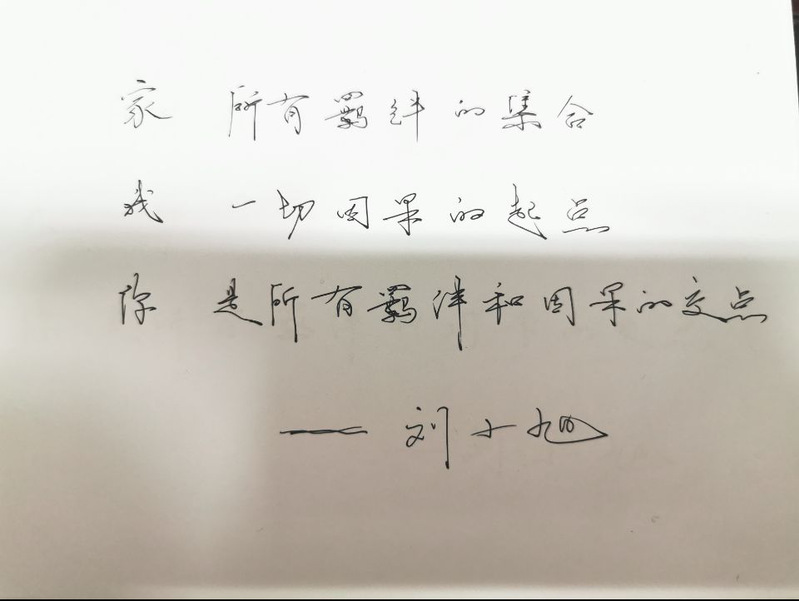 家 所有羁绊的集合
我 一切因果的起点
你 是所有羁绊和因果的交点
—— 刘小旭